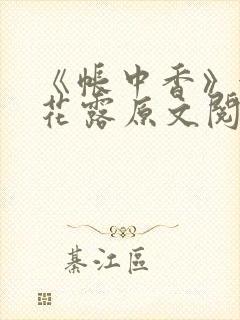 《帐中香》
花露原文阅
綦江区